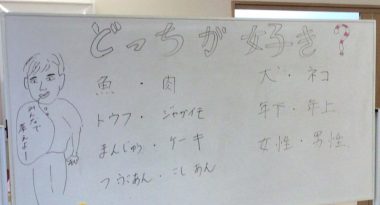 どっちが好き?
魚・肉
トウフ・ジャガイモ
まんじゅう・ケーキ
つぶあん・こしあん
犬・ネコ
年下・年上
女性・男性
みんなで